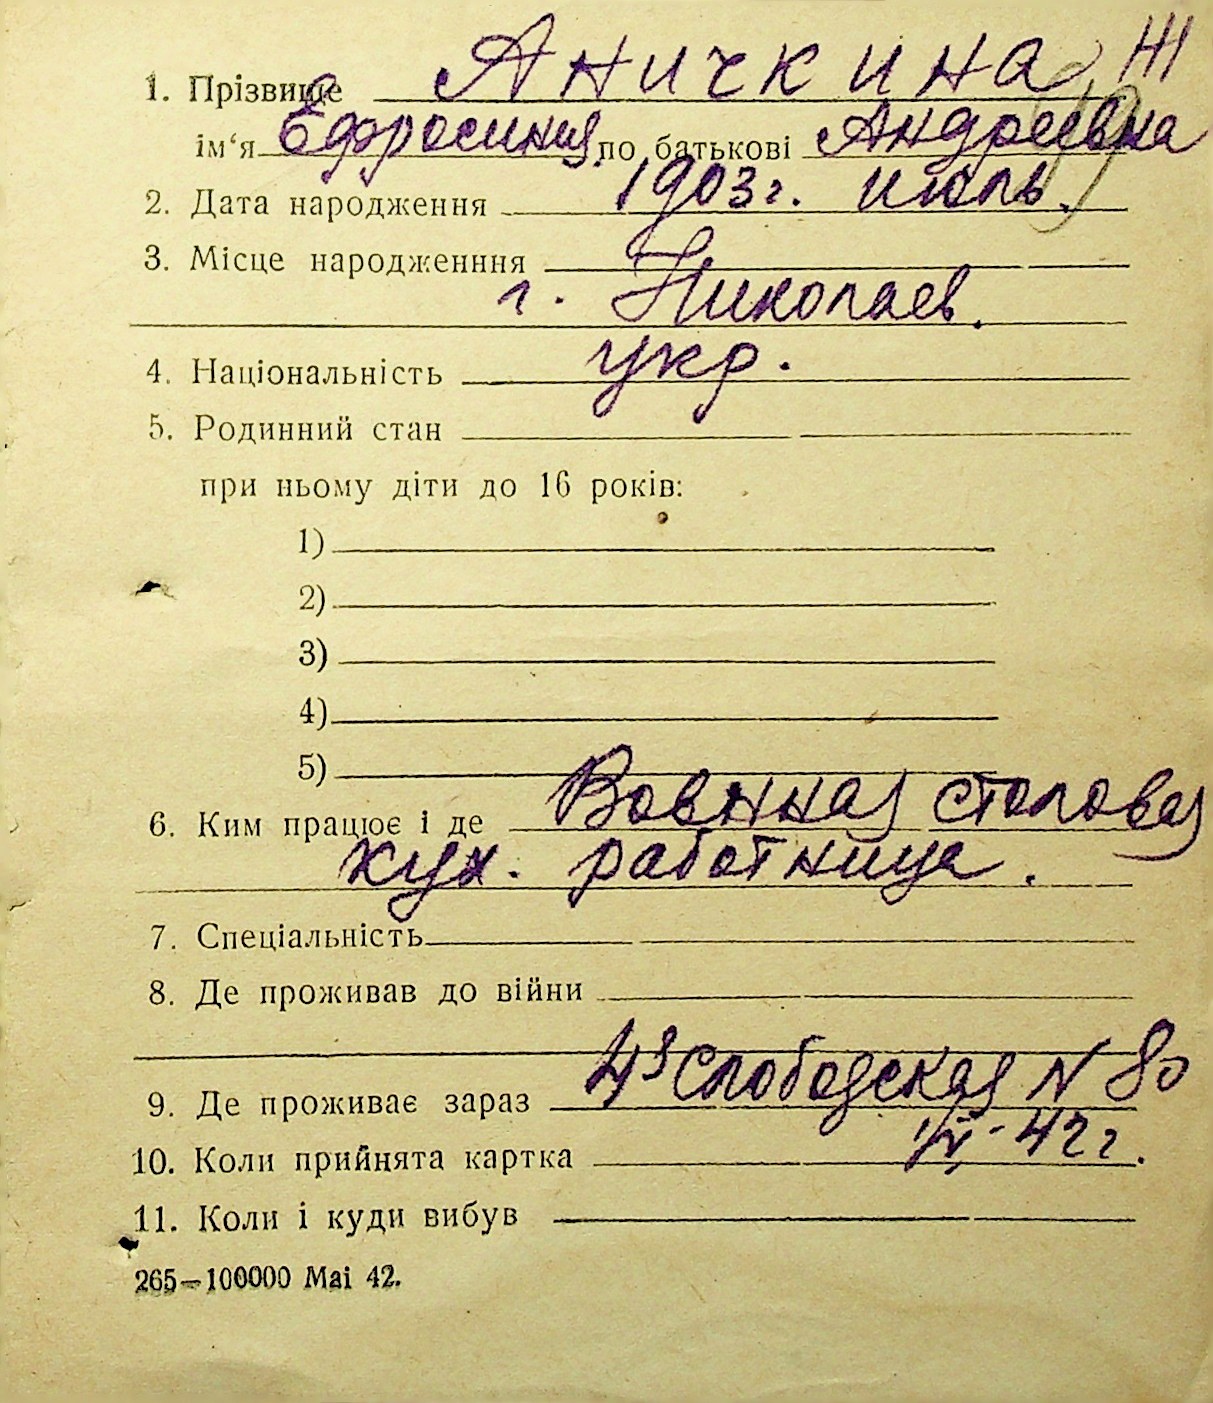 1. Прізвище Аничкина ж
ім‘я Ефросиния по батькові Андреевна
2. Дата народження 1903 г. июль.
3. Місце народженння
г. Николаев.
4. Національність укр.
5. Родинний стан
при ньому діти до 16 років:
1)
2)
3)
4)
5)
6. Ким працює і де Военная столовая
кух. работница.
7. Спеціальність
8. Де проживав до війни
9. Де проживає зараз Слободская N 80
10. Коли прийнята картка 42 г.
11. Коли і куди вибув
265—100000 Mai 42.